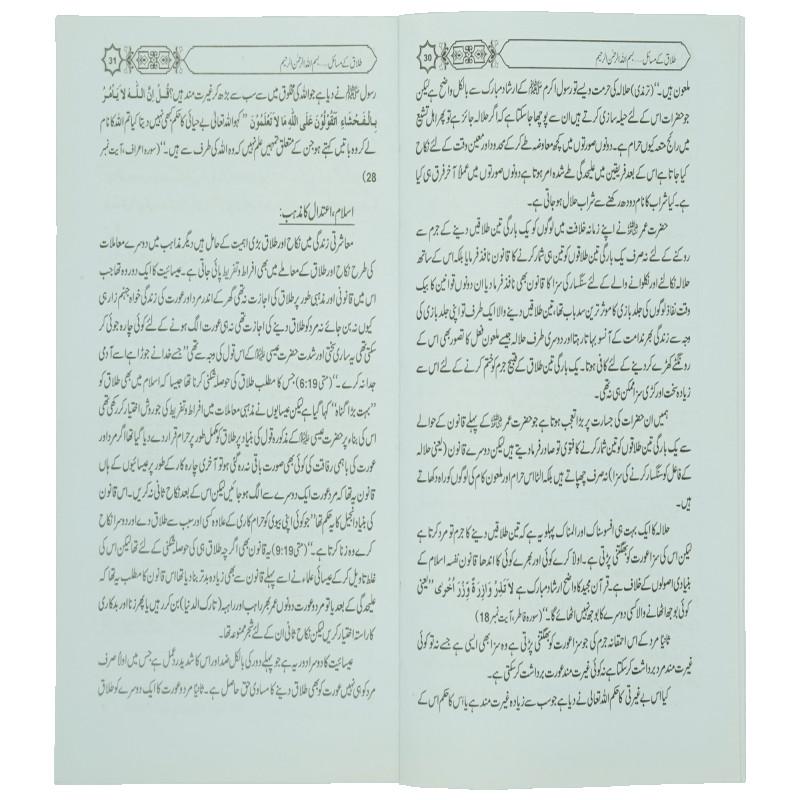 30
طلاق کے مسائل.... بسم اللہ الرحمٰن الرحیم
ملعون ہیں۔“ (ترمذی) حلالہ کی حرمت ویسے تو رسول اکرم ﷺ کے ارشاد مبارک سے بالکل واضح ہے لیکن
جو حضرات اس کے لئے حیلہ سازی کرتے ہیں ان سے پوچھا جا سکتا ہے کہ اگر حلالہ جائز ہے تو پھر اہل تشیع
میں رائج متعہ کیوں حرام ہے۔ دونوں صورتوں میں کچھ معاوضہ طے کر کے محدود اور معین وقت کے لئے نکاح
کیا جاتا ہے اس کے بعد فریقین میں علیحدگی طے شدہ امر ہوتا ہے دونوں صورتوں میں عملاً آخر فرق ہی کیا
ہے۔ کیا شراب کا نام دودھ رکھنے سے شراب حلال ہو جاتی ہے۔
حضرت عمر نے اپنے زمانہ خلافت میں لوگوں کو یک بارگی تین طلاقیں دینے کے جرم سے
روکنے کے لئے نہ صرف یک بارگی تین طلاقوں کو تین ہی شمار کرنے کا قانون نافذ فرمایا بلکہ اس کے ساتھ
حلالہ نکالنے اور نکلوانے والے کے لئے سنگسار کی سزا کا قانون بھی نافذ فرما دیا ان دونوں قوانین کا بیک
وقت نفاذ لوگوں کی جلد بازی کا موثر ترین سدباب تھا، تین طلاقیں دینے والا ایک طرف تو اپنی جلد بازی کی
وجہ سے زندگی بھر ندامت کے آنسو بہاتا رہتا اور دوسری طرف حلالہ جیسے ملعون فعل کا تصور بھی اس کے
رونگٹے کھڑے کر دینے کے لئے کافی ہوتا۔ یک بارگی تین طلاق کے قبیح جرم کو ختم کرنے کے لئے اس سے
زیادہ سخت اور کڑی سزا ممکن ہی نہ تھی۔
ہمیں ان حضرات کی جسارت پر بڑا تعجب ہوتا ہے جو حضرت عمر کے پہلے قانون کے حوالے
سے یک بارگی تین طلاقوں کو تین شمار کرنے کا فتویٰ تو صادر فرما دیتے ہیں لیکن دوسرے قانون (یعنی حلالہ
کے فاعل کو سنگسار کرنے کی سزا) نہ صرف چھپاتے ہیں بلکہ الٹا اس حرام اور ملعون کام کی لوگوں کو راہ دکھاتے
ہیں۔
حلالہ کا ایک بہت ہی افسوسناک اور المناک پہلو یہ ہے کہ تین طلاقیں دینے کا جرم تو مرد کرتا ہے
لیکن اس کی سزا عورت کو بھگتنی پڑتی ہے۔ اولاً کرے کوئی اور بھرے کوئی کا اندھا قانون بنفسہ اسلام کے
بنیادی اصولوں کے خلاف ہے۔ قرآن مجید کا واضح ارشاد مبارک ہے لَا تَزِرُ وَازِرَةٌ وِّزْرَ اُخْرٰی ”یعنی
کوئی بوجھ اٹھانے والا کسی دوسرے کا بوجھ نہیں اٹھائے گا۔“ (سورہ فاطر، آیت نمبر 18)
ثانیاً مرد کے اس احمقانہ جرم کی جو سزا عورت کو بھگتنی پڑتی ہے وہ سزا بھی ایسی ہے جسے نہ تو کوئی
غیرت مند مرد برداشت کر سکتا ہے نہ کوئی غیرت مند عورت برداشت کر سکتی ہے۔
کیا اس بے غیرتی کا حکم اللہ تعالیٰ نے دیا ہے جو سب سے زیادہ غیرت مند ہے یا اس کا حکم اس کے
31
طلاق کے مسائل.... بسم اللہ الرحمٰن الرحیم
رسول ﷺ نے دیا ہے جو اللہ کی مخلوق میں سے سب سے بڑھ کر غیرت مند ہیں؟ قُلْ اِنَّ اللّٰهَ لَا یَاْمُرُ
بِالْفَحْشَاءِ اَتَقُوْلُوْنَ عَلَی اللّٰهِ مَا لَا تَعْلَمُوْنَ ”کہو اللہ تعالیٰ بے حیائی کا حکم کبھی نہیں دیتا کیا تم اللہ کا نام
لے کر وہ باتیں کہتے ہو جن کے متعلق تمہیں علم نہیں کہ وہ اللہ کی طرف سے ہیں۔“ (سورہ اعراف، آیت نمبر
28)
اسلام، اعتدال کا مذہب:
معاشرتی زندگی میں نکاح اور طلاق بڑی اہمیت کے حامل ہیں دیگر مذاہب میں دوسرے معاملات
کی طرح نکاح اور طلاق کے معاملے میں بھی افراط و تفریط پائی جاتی ہے۔ عیسائیت کا ایک دور وہ تھا جب
اس میں قانونی اور مذہبی طور پر طلاق کی اجازت نہ تھی گھر کے اندر مرد اور عورت کی زندگی خواہ جہنم زار ہی
کیوں نہ بن جائے نہ مرد کو طلاق دینے کی اجازت تھی نہ ہی عورت الگ ہونے کے لئے کوئی چارہ جوئی کر
سکتی تھی یہ ساری سختی اور شدت حضرت عیسیٰ کے اس قول کی وجہ سے تھی ”جسے خدا نے جوڑا ہے اسے آدمی
جدا نہ کرے۔“ (متی 6:19) جس کا مطلب طلاق کی حوصلہ شکنی کرنا تھا جیسا کہ اسلام میں بھی طلاق کو
”بہت بڑا گناہ“ کہا گیا ہے لیکن عیسائیوں نے مذہبی معاملات میں افراط و تفریط کی جو روش اختیار کر رکھی تھی
اس کی بناء پر حضرت عیسیٰ کے مذکورہ قول کی بنیاد پر طلاق کو مکمل طور پر حرام قرار دے دیا گیا تھا اگر مرد اور
عورت کی باہمی رفاقت کی کوئی بھی صورت باقی نہ رہ گئی ہو تو آخری چارہ کار کے طور پر عیسائیوں کے ہاں
قانون یہ تھا کہ مرد عورت ایک دوسرے سے الگ ہو جائیں لیکن اس کے بعد نکاح ثانی نہ کریں۔ اس قانون
کی بنیاد انجیل کا یہ حکم تھا ”جو کوئی اپنی بیوی کو حرام کاری کے علاوہ کسی اور سبب سے طلاق دے اور دوسرا نکاح
کرے وہ زنا کرتا ہے۔“ (متی 9:19) یہ قانون بھی اگرچہ طلاق ہی کی حوصلہ شکنی کے لئے تھا لیکن اس کی
غلط تاویل کر کے عیسائی علماء نے اسے پہلے قانون سے بھی زیادہ بدتر بنا دیا تھا اس قانون کا مطلب یہ تھا کہ
علیحدگی کے بعد یا تو مرد عورت دونوں عمر بھر راہب اور راہبہ (تارک الدنیا) بن کر رہیں یا پھر زنا اور بدکاری
کا راستہ اختیار کریں لیکن نکاح ثانی ان کے لئے شجر ممنوعہ تھا۔
عیسائیت کا دوسرا دور یہ ہے جو پہلے دور کی بالکل ضد اور اس کا شدید ردعمل ہے جس میں اولاً صرف
مرد کو ہی نہیں عورت کو بھی طلاق دینے کا مساوی حق حاصل ہے۔ ثانیاً مرد و عورت کا ایک دوسرے کو طلاق